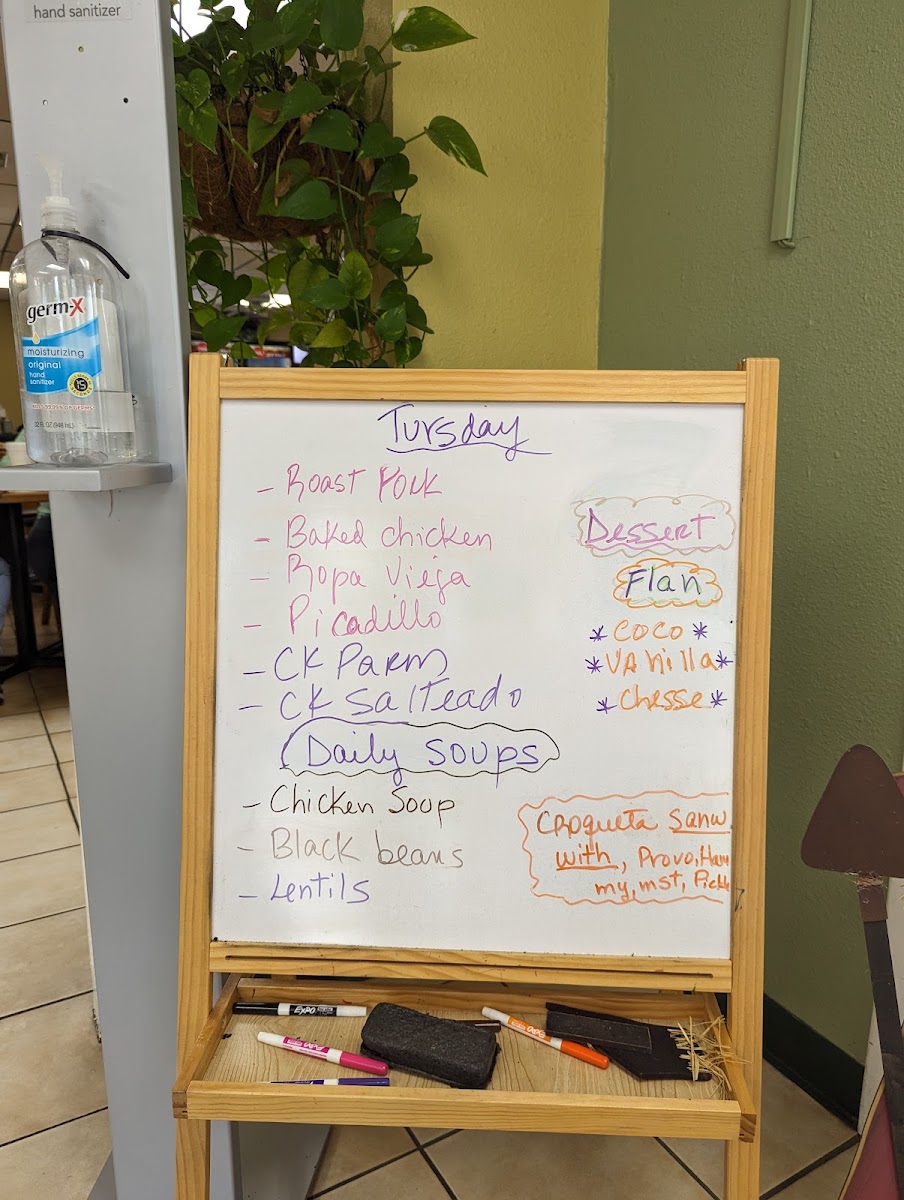 hand sanitizer
germ-X
moisturizing
original
hand
sanitizer
15
32 FL OZ (946 mL)
Tursday
- Roast Pork
- Baked chicken
- Ropa Vieja
- Picadillo
- CK Parm
- CK Salteado
Daily Soups
- Chicken Soup
- Black beans
- Lentils
Dessert
Flan
* Coco *
* VAnilla *
* Chesse *
CRoqueta Sanw
with, Provo, Ham
my, mst, Pickle
EXPO
EXPO
EXPO